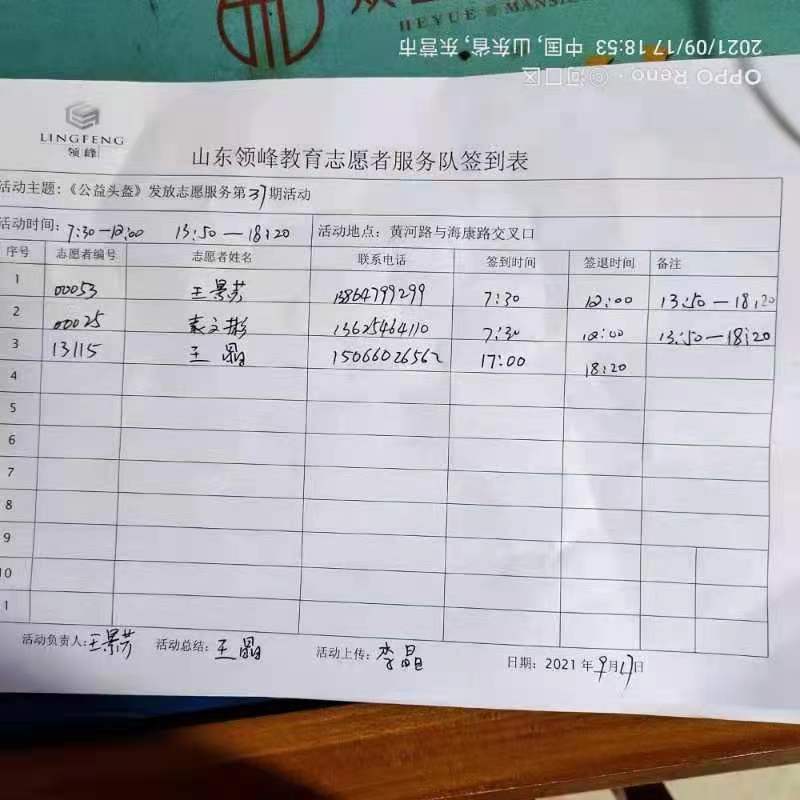 HEYUE MANSI
2021/09/17 18:53 中国, 山东省, 东营市
OPPO Reno · ◎河口区
LINGFENG
领峰
山东领峰教育志愿者服务队签到表
活动主题:《公益头盔》发放志愿服务第37期活动
活动时间: 7:30-12:00 13:50-18:20 活动地点: 黄河路与海康路交叉口
序号 志愿者编号 志愿者姓名 联系电话 签到时间 签退时间 备注
1 00053 王景芳 13864799299 7:30 12:00 13:50-18:20
2 00025 袁文彬 13625464110 7:30 12:00 13:50-18:20
3 13115 王晶 15066026562 17:00 18:20
4
5
6
7
8
9
10
1
活动负责人: 王景芳 活动总结: 王晶 活动上传: 李晶 日期: 2021年9月17日